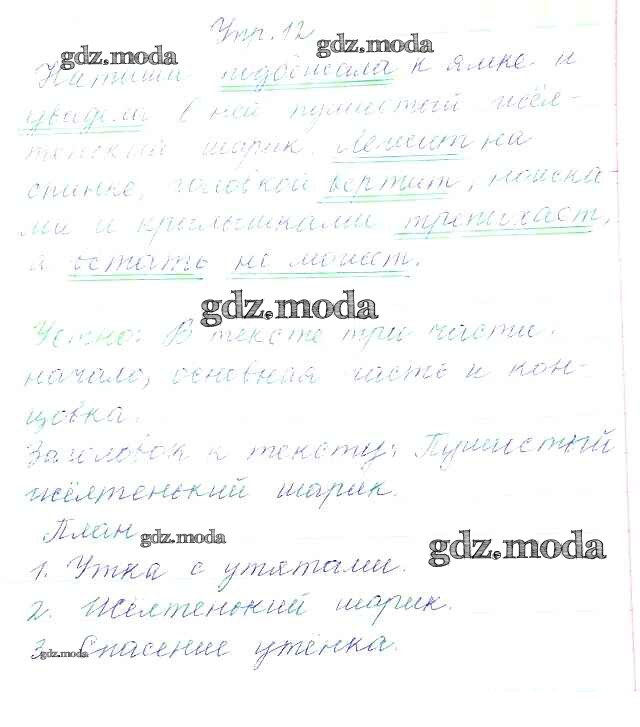 Упр. 12
gdz.moda gdz.moda
Катюша подбежала к ямке и
увидела в ней пушистый жёл-
тенький шарик. Лежит на
спинке, головкой вертит, ножка-
ми и крылышками трепыхает,
а встать не может.
gdz.moda
Устно: В тексте три части.
начало, основная часть и кон-
цовка.
Заголовок к тексту: Пушистый
жёлтенький шарик.
План
gdz.moda gdz.moda
1. Утка с утятами.
2. Жёлтенький шарик.
3. Спасение утёнка.
gdz.moda